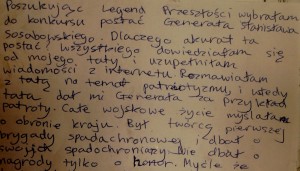 Poszukując Legend Przeszłości wybrałam
do konkursu postać Generała Stanisława
Sosabowskiego. Dlaczego akurat ta
postać, wszystkiego dowiedziałam się
od mojego taty i uzupełniłam
wiadomości z internetu. Rozmawiałam
z tatą na temat patriotyzmu, i wtedy
tata dał mi Generała za przykład
patrioty. Całe wojskowe życie myślał
o obronie kraju. Był twórcą pierwszej
brygady spadachronowej i dbał o
swoich spadochroniarzy. Nie dbał o
nagrody tylko o honor. Myślę że